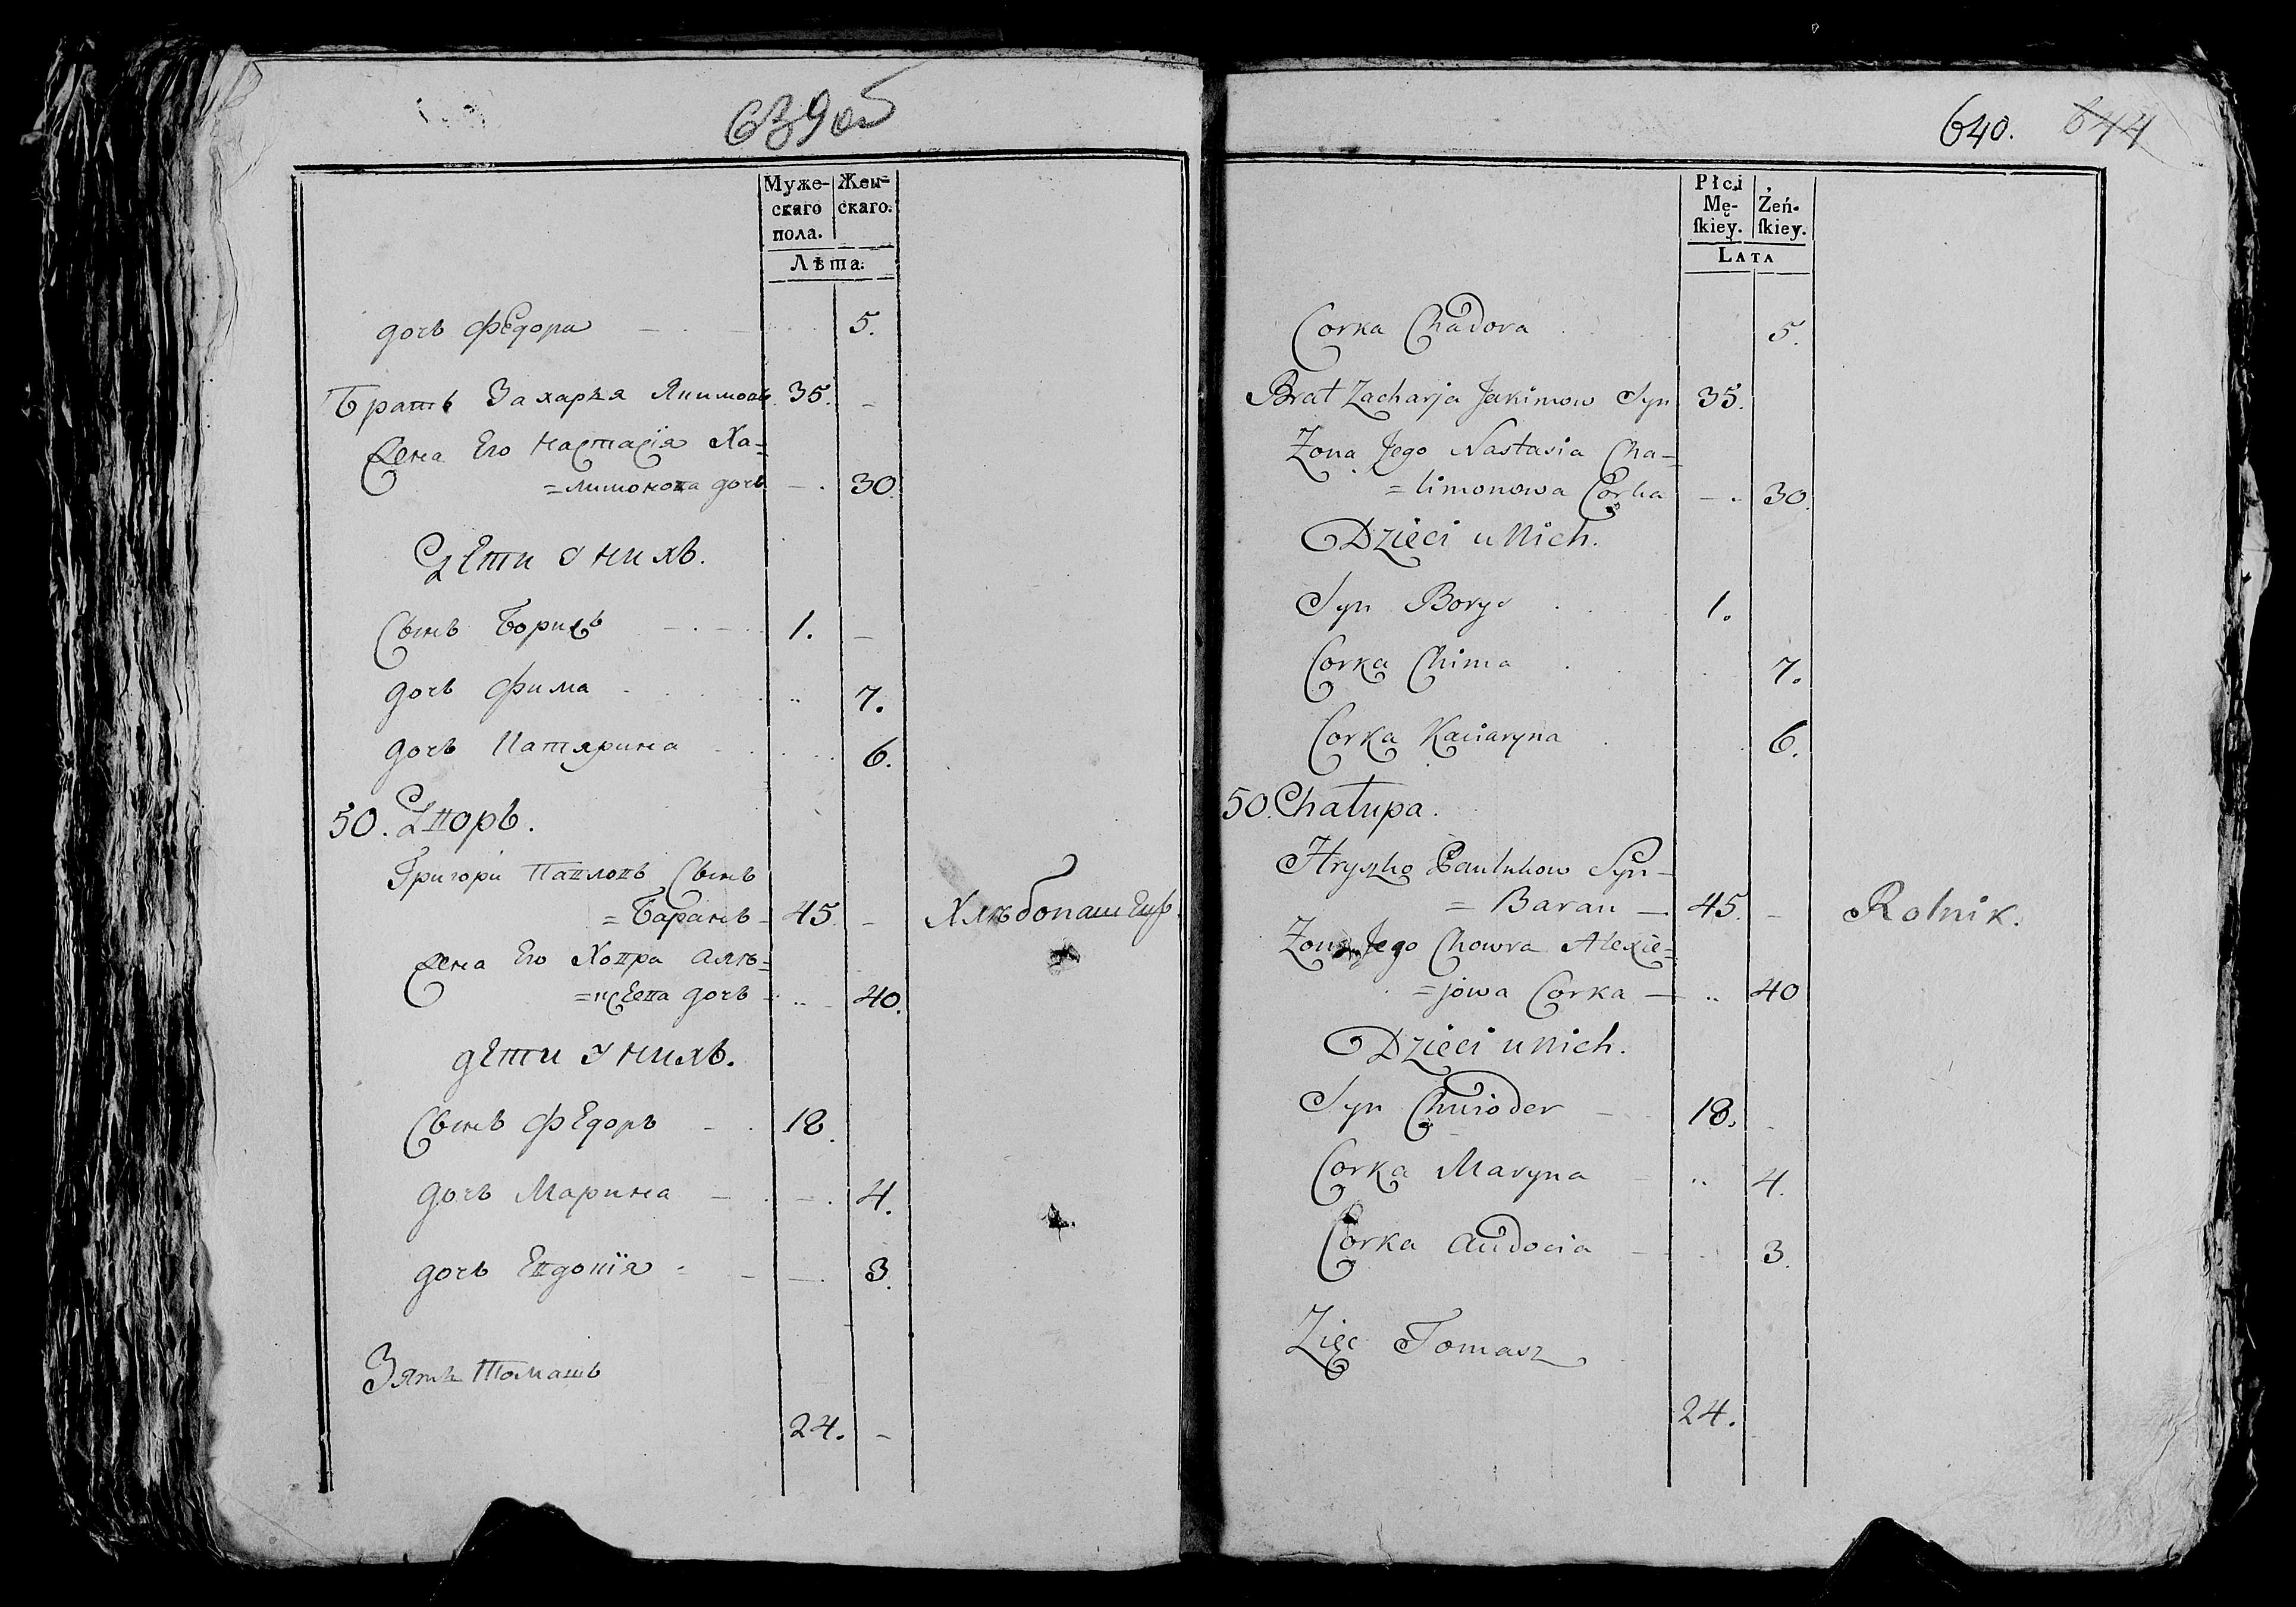 639об
Муже-
скаго
пола.
Жен-
скаго.
Лѣта:
дочь Федора 5.
Братъ Захарья Якимовъ 35. -
Жена Его Настасія Ха-
=лимонова дочь - . 30.
Дети У нихъ.
Сынъ Борисъ 1. -
дочь Фима 7.
дочь Катярина 6.
50. Дворъ.
Григори Павловъ Сынъ
=Баранъ - 45. - Хлебопашецъ.
Жена Его Ховра Але=
=ксеева дочь - 40.
дети У нихъ.
Сынъ Федоръ 18.
дочь Марина - 4.
дочь Евдокія - 3.
Зять Томашъ
24. -
640. 644
Płci
Mę-
ſkiey.
Żeń-
ſkiey.
LATA
Corka Chadora 5.
Brat Zacharja Jakimow Syn 35.
Zona Jego Nastasia Cha-
=limonowa Corka - . 30.
Dzieci u Nich.
Syn Borys 1.
Corka Chima 7.
Corka Kaciaryna 6.
50. Chałupa.
Hryszko Pawlukow Syn -
= Baran - 45. - Rolnik.
Zona Jego Chowra Alexie-
=jowa Corka - 40
Dzieci u nich.
Syn Chwioder - 18.
Corka Maryna 4.
Corka Audocia - 3.
Zięc Tomasz
24.